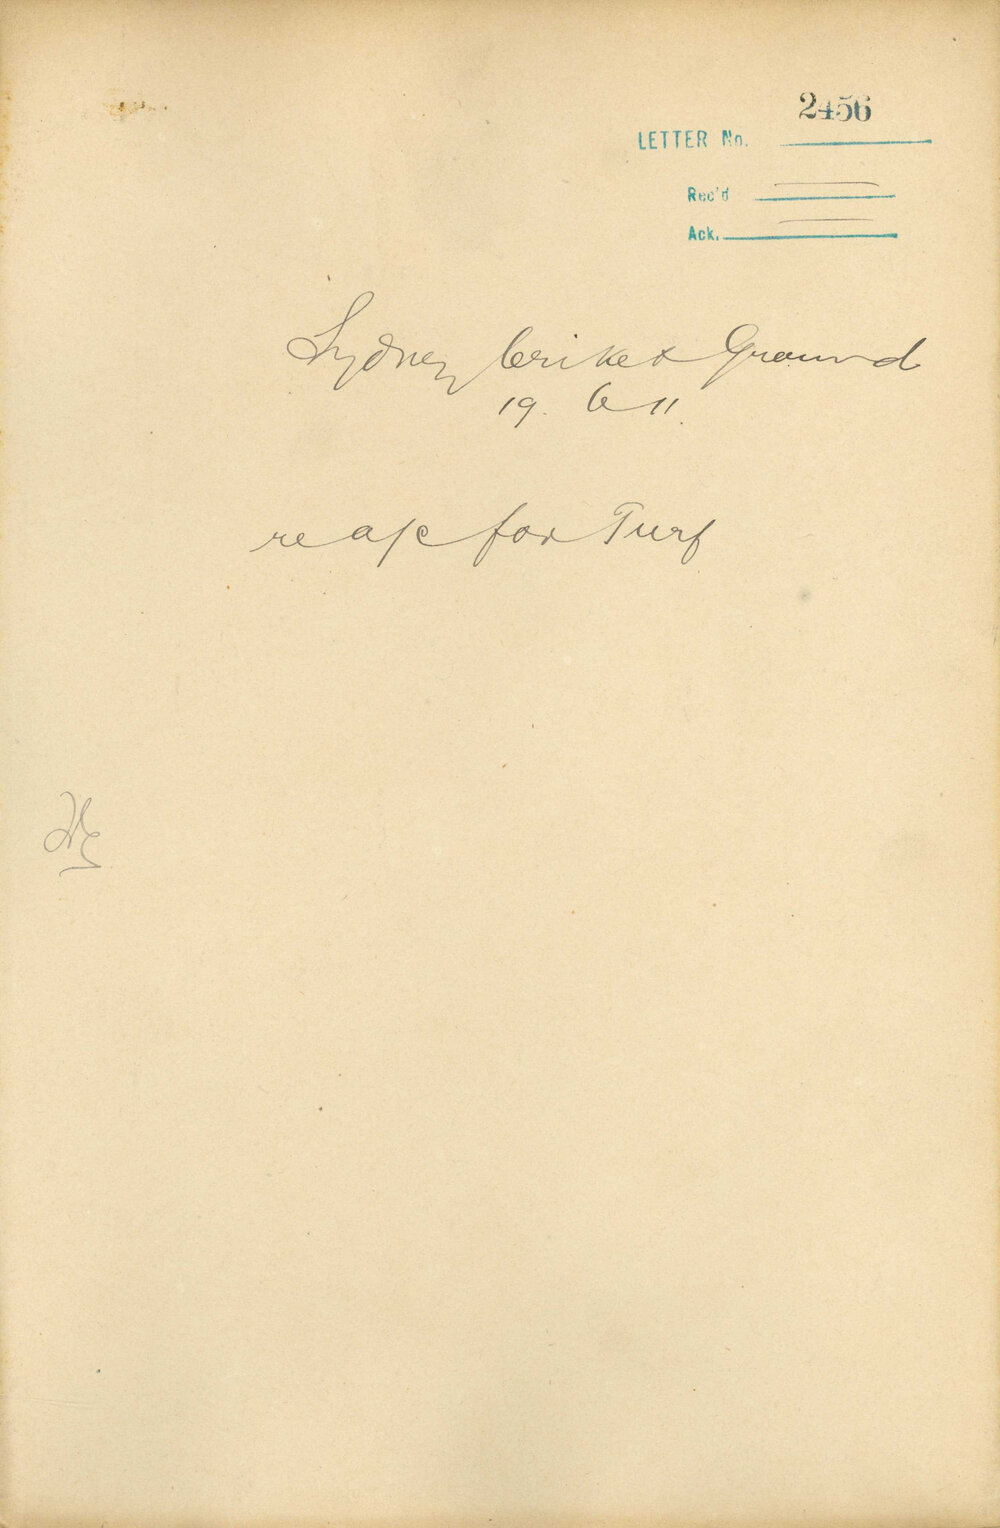 2456
LETTER No.
Rec'd
Ack.
Sydney Criket Ground
19. 6 11.
re a/c for Turf